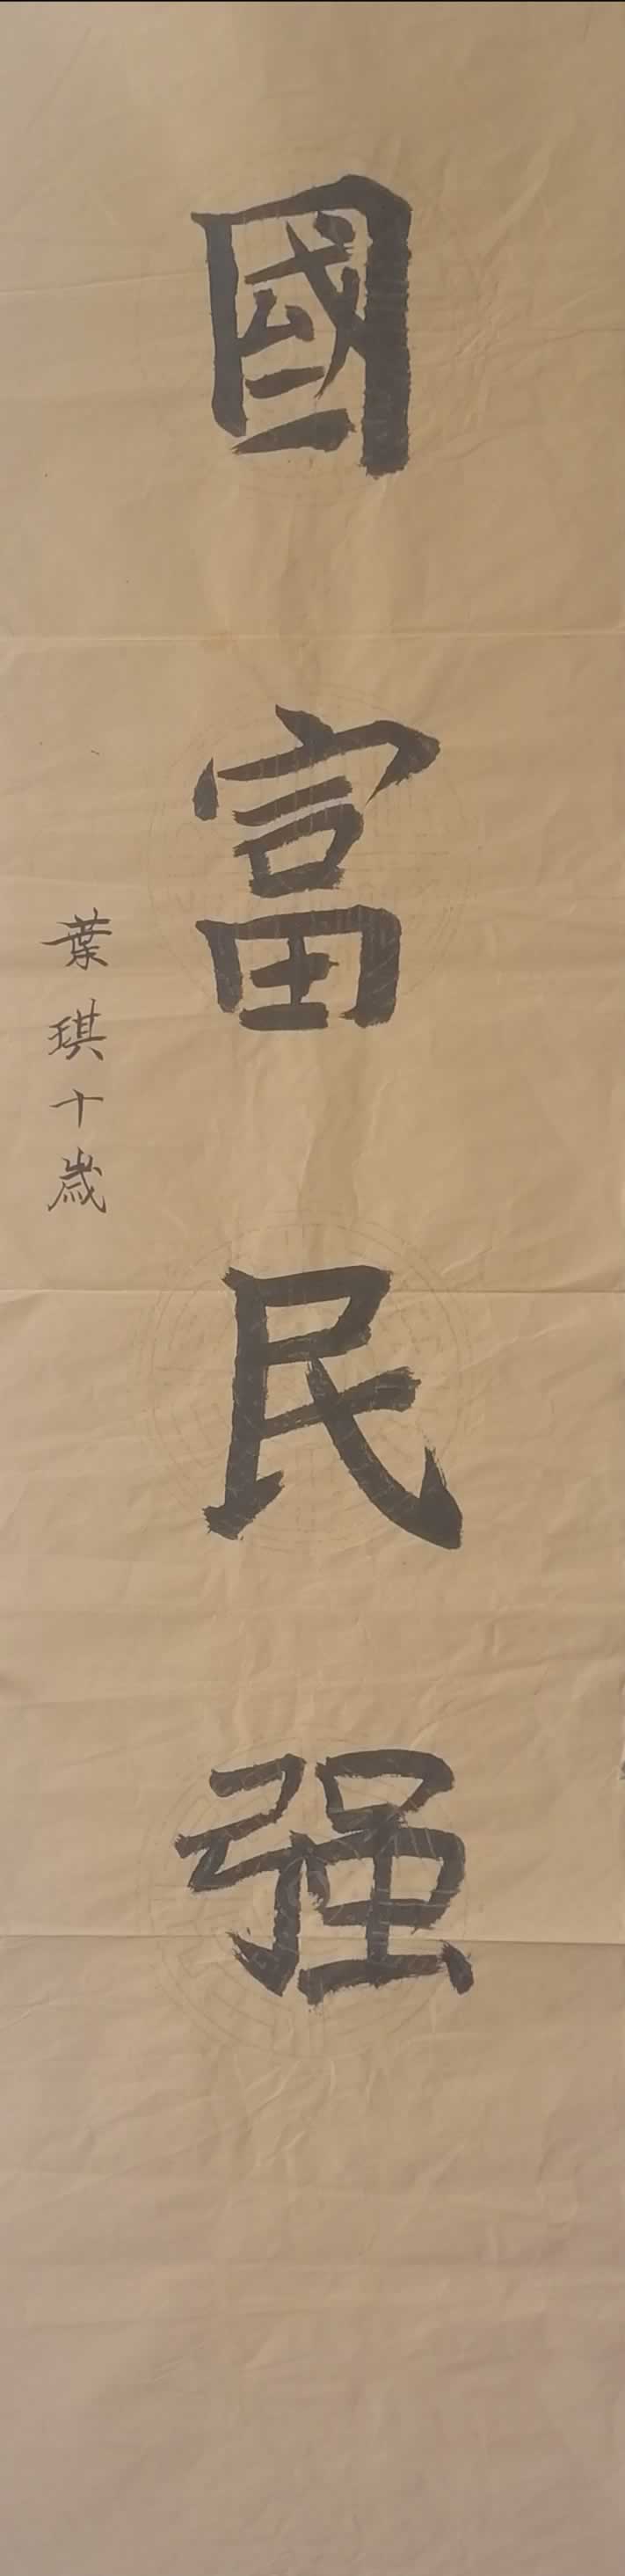 國富民强
葉琪十歲